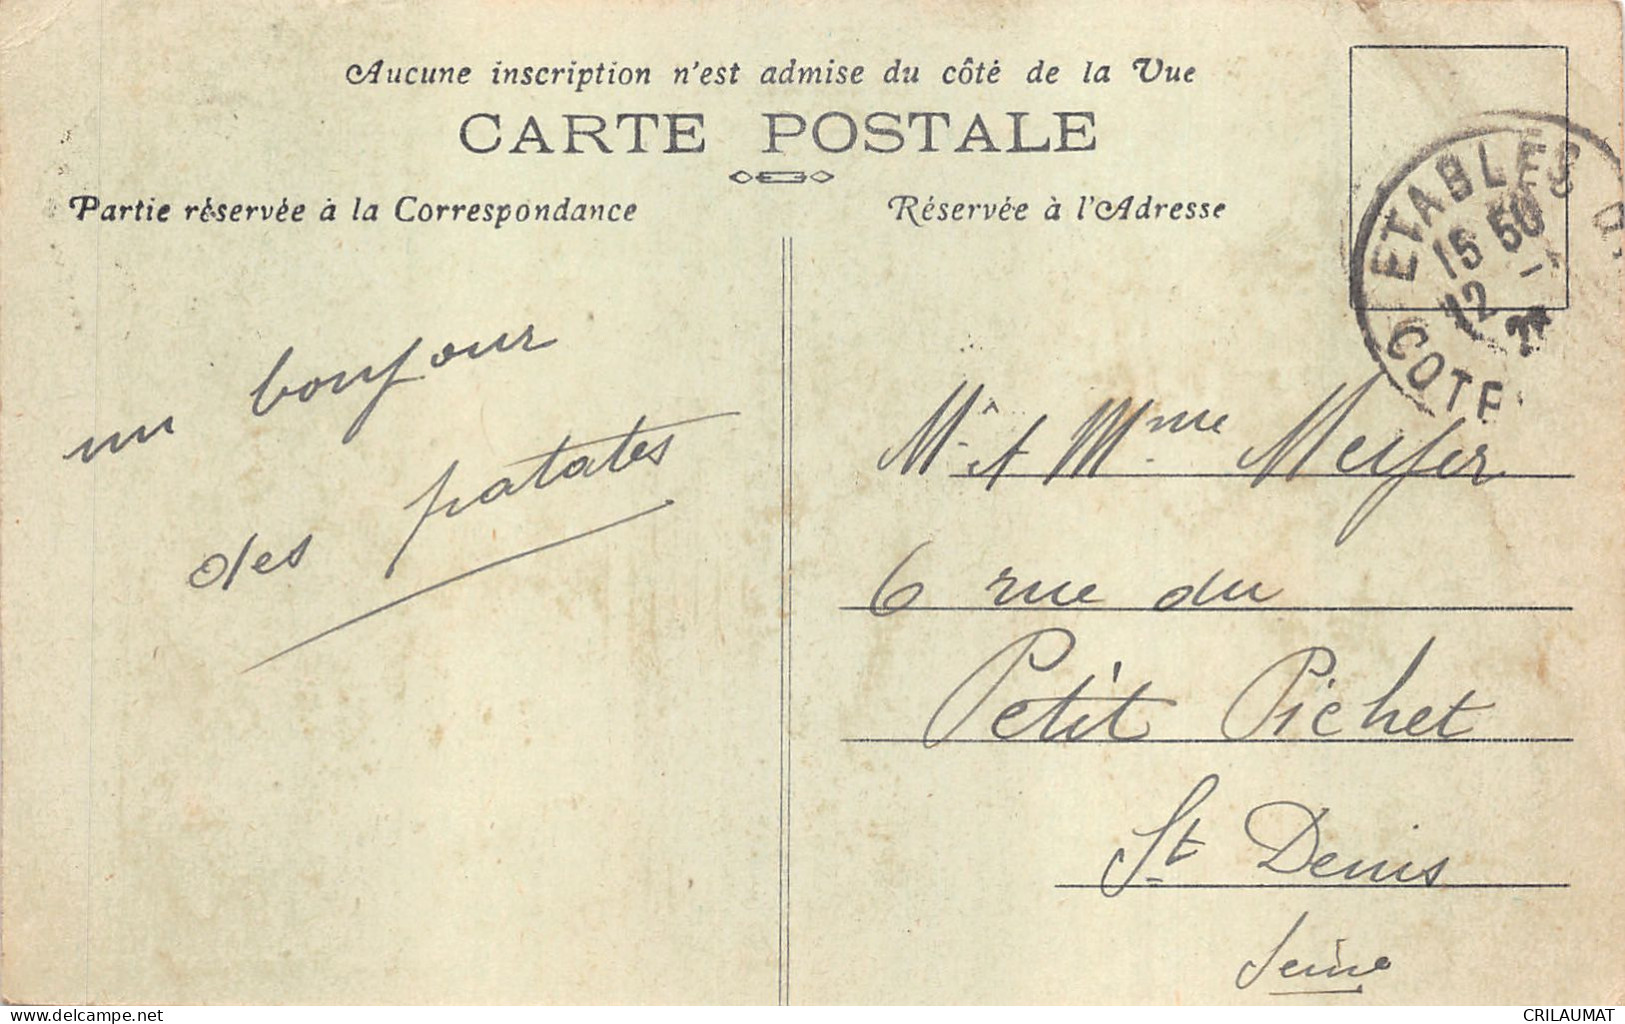 Aucune inscription n'est admise du côté de la Vue
CARTE POSTALE
Partie réservée à la Correspondance
Réservée à l'Adresse
ETABLES
15 50
12 -
COTE
un bonjour
des patates
Mr et Mme Meyer
6 rue du
Petit Pichet
St Denis
Seine
delcampe.net
CRILAUMAT